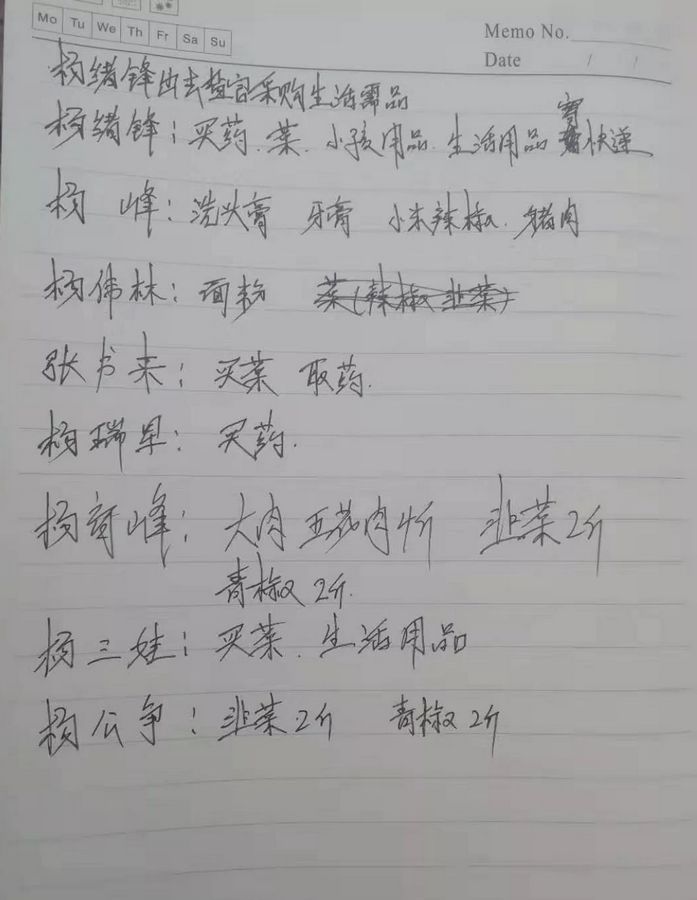 Mo Tu We Th Fr Sa Su
Memo No.
Date / /
杨绪锋出去整合采购生活需品
杨绪锋：买药、菜、小孩用品、生活用品 寄快递
杨 峰：洗头膏 牙膏 小米辣椒、猪肉
杨伟林：面粉 菜(辣椒 韭菜)
张书来：买菜 取药.
杨瑞早：买药.
杨奇峰：大肉 五花肉4斤 韭菜2斤
青椒 2斤.
杨三娃：买菜、生活用品
杨公争：韭菜2斤 青椒 2斤